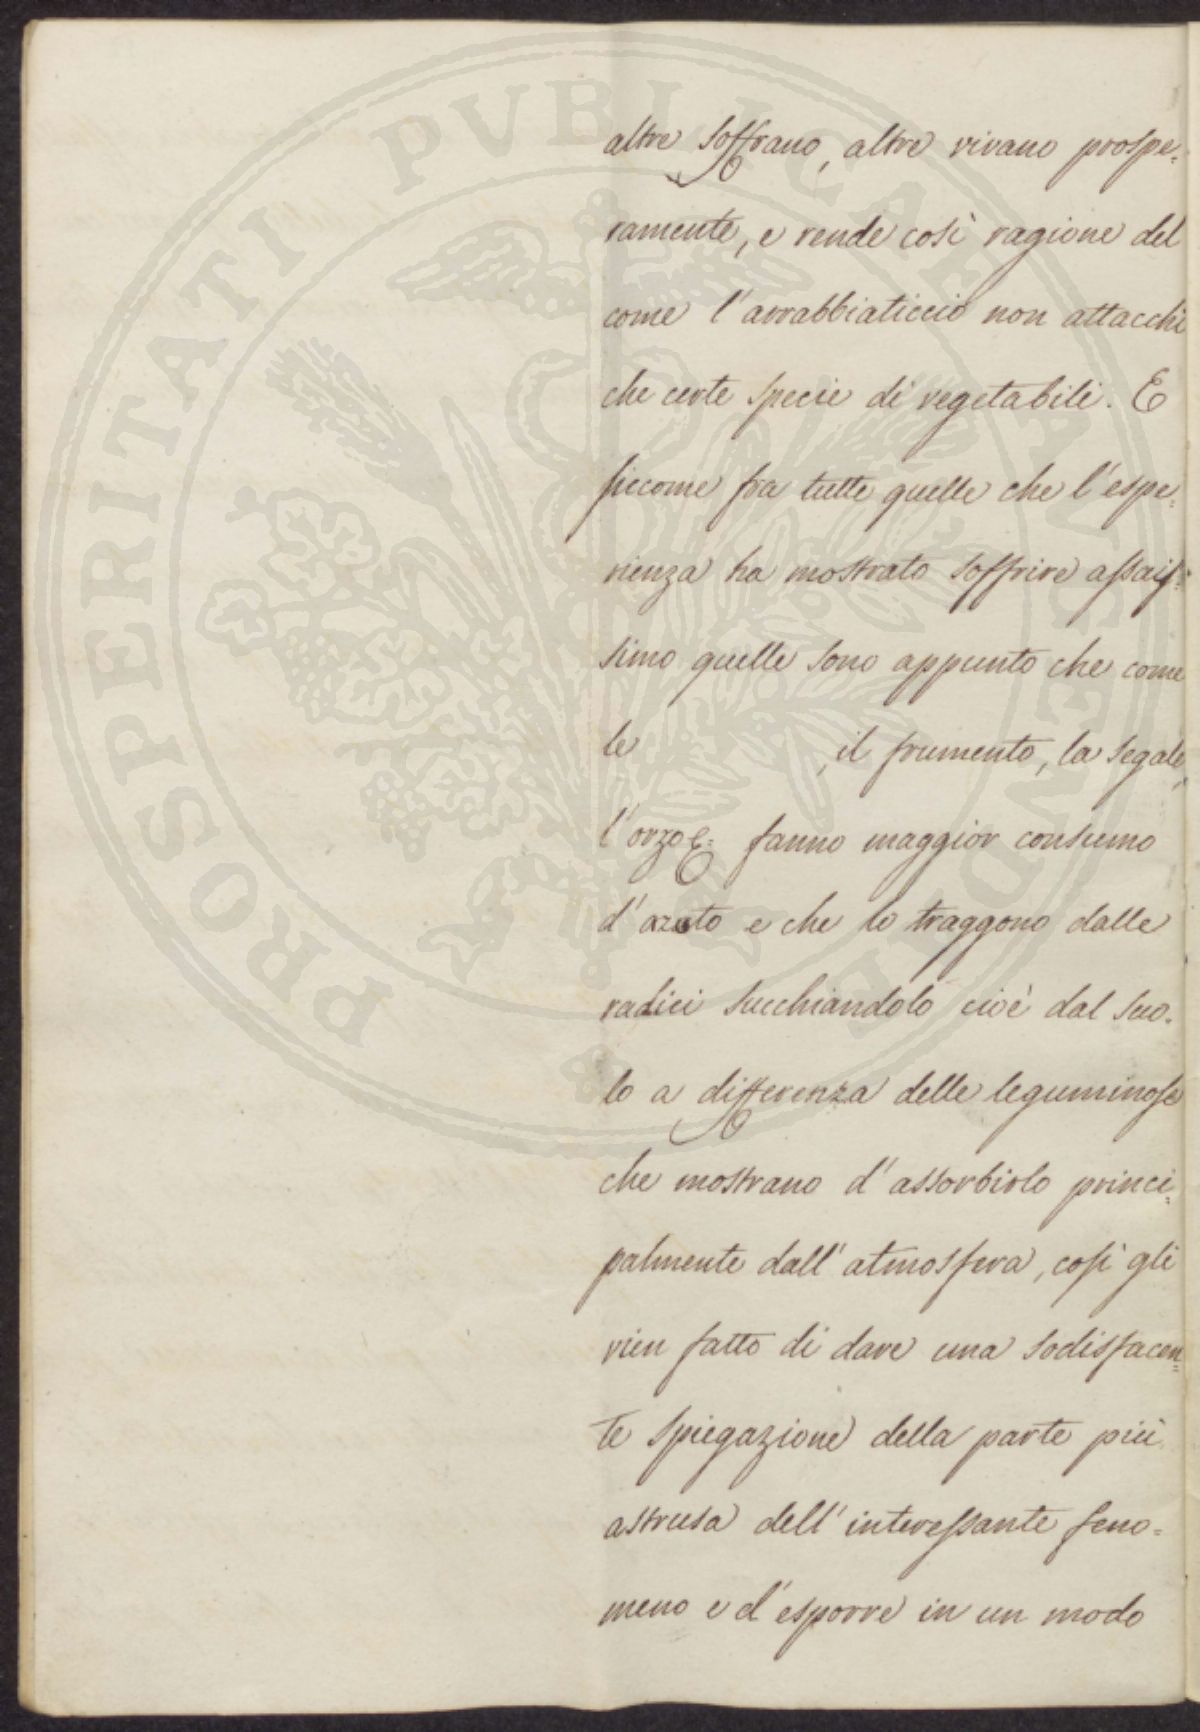 altre soffrano, altre vivano prospe=
ramente, e rende così ragione del
come l'arrabbiaticcio non attacchi
che certe specie di vegetabili. E
siccome fra tutte quelle che l'espe=
rienza ha mostrato soffrire assais=
simo quelle sono appunto che come
le , il frumento, la segale,
l'orzo &: fanno maggior consumo
d'azoto e che lo traggono dalle
radici succhiandolo cioè dal suo=
lo a differenza delle leguminose
che mostrano d'assorbirlo princi=
palmente dall'atmosfera, così gli
vien fatto di dare una sodisfacen=
te spiegazione della parte più
astrusa dell'interessante feno=
meno e d'esporre in un modo
PROSPERITATI PUBLICAE AUGENDAE